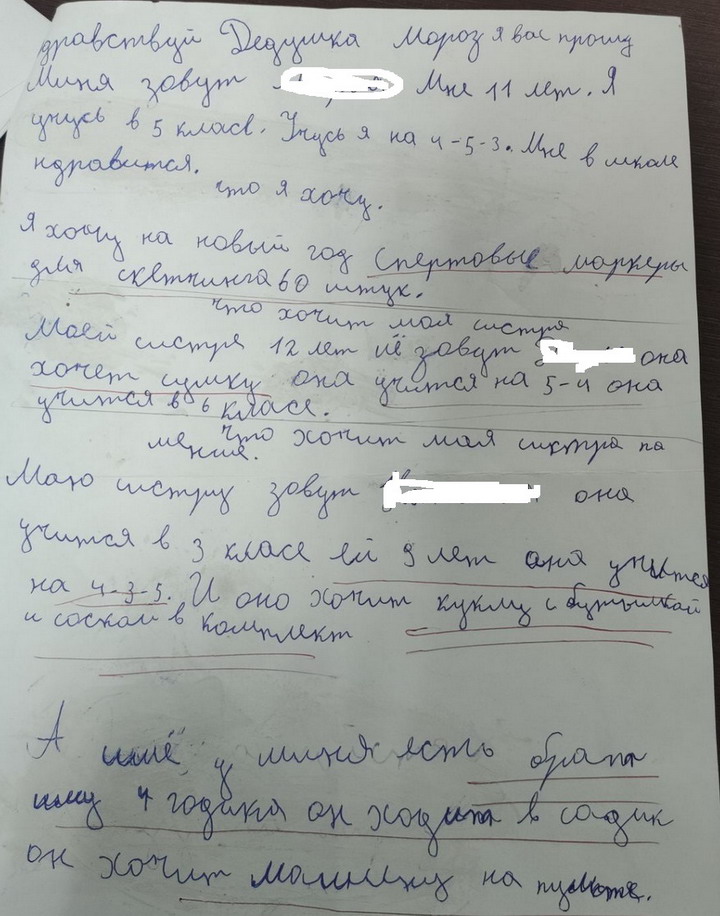 дравствуй Дедушка Мороз я вас прошу
Миня зовут Мне 11 лет. Я
учусь в 5 класе. Учусь я на 4-5-3. Мне в школе
ндравится.
что я хочу.
Я хочу на новый год спертовые маркеры
для скетчинга 60 штук.
что хочит моя систра
Моей систре 12 лет её зовут она
хочет сумку она учится на 5-4 она
учится в 6 класе.
что хочит моя систра па
меньше.
Маю систру зовут она
учится в 3 класе ей 9 лет она учится
на 4-3-5. И оно хочит куклу с бутылкай
и соской в комплект
А ишё у миня есть брат
ему 4 годика он ходит в садик
он хочит машинку на пульте.